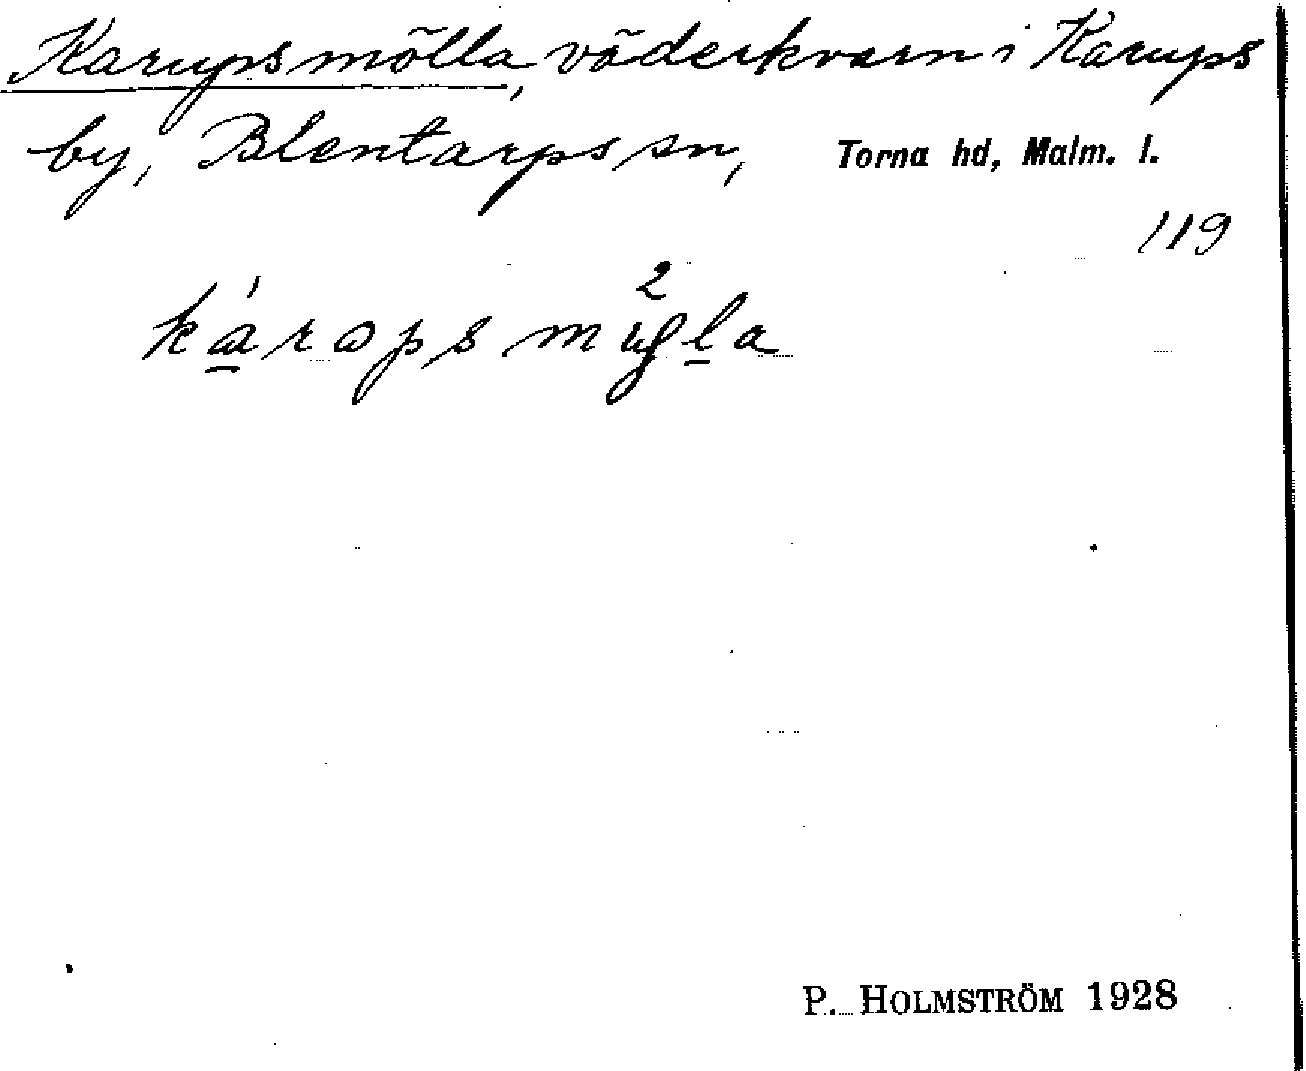 Karups mölla, väderkvarn i Karups
by, Blentarps sn, Torna hd, Malm. l.
119
P. HOLMSTRÖM 1928